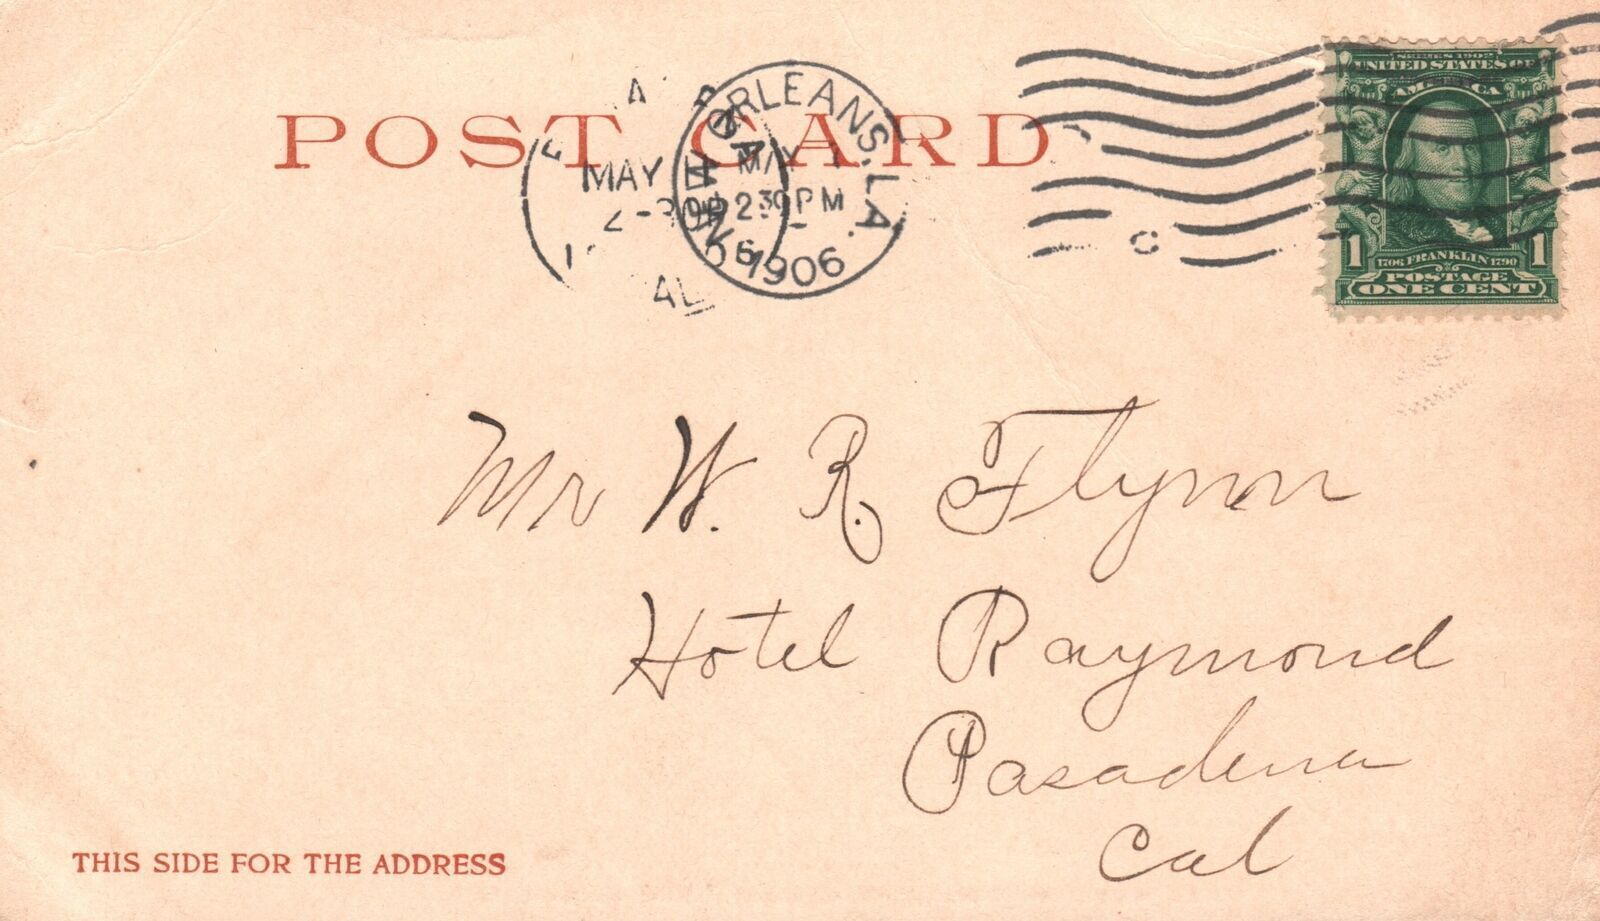 POST CARD
NEW ORLEANS, LA.
MAY 1
2 30 PM
1906
MAY
AL
SERIES 1902
UNITED STATES OF
AMERICA
1 1706 FRANKLIN 1790 1
POSTAGE
ONE CENT
Mr W. R. Flynn
Hotel Raymond
Pasadena
Cal
THIS SIDE FOR THE ADDRESS